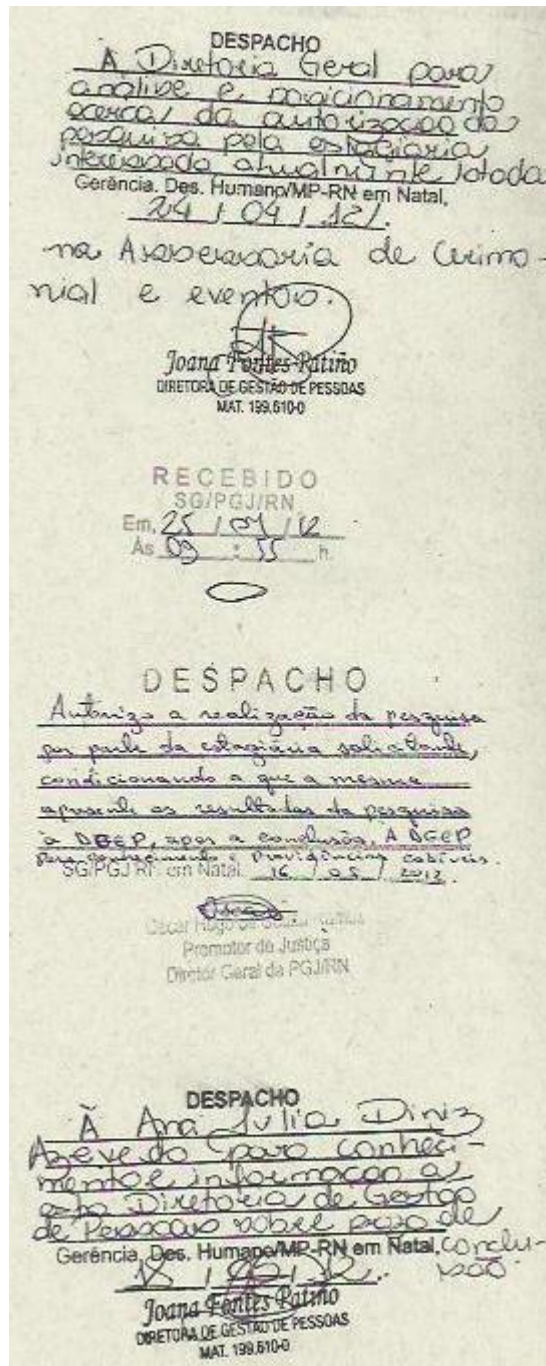 DESPACHO
À Diretoria Geral para
análise e posicionamento
acerca da autorização da
pesquisa pela estagiária
interessada atualmente lotada
Gerência. Des. Humano/MP-RN em Natal,
24 / 04 / 12.
na Assessoria de Cerimo-
nial e eventos.
Joana Fontes Patiño
DIRETORA DE GESTÃO DE PESSOAS
MAT. 199.610-0
RECEBIDO
SG/PGJ/RN
Em, 25 / 04 / 12
Às 09 : 55 h.
DESPACHO
Autorizo a realização da pesquisa
por parte da estagiária solicitante,
condicionando a que a mesma
apresente os resultados da pesquisa
à DGEP, após a conclusão. A DGEP
para conhecimento e providências cabíveis.
SG/PGJ RN em Natal, 16 / 05 / 2012.
Oscar Hugo de Souza Ramos
Promotor de Justiça
Diretor Geral da PGJ/RN
DESPACHO
À Ana Julia Diniz
Azevedo para conheci-
mento e informação a
esta Diretoria de Gestão
de Pessoas sobre prazo de
Gerência. Des. Humano/MP-RN em Natal, conclu-
são.
18 / 12.
Joana Fontes Patiño
DIRETORA DE GESTÃO DE PESSOAS
MAT. 199.610-0